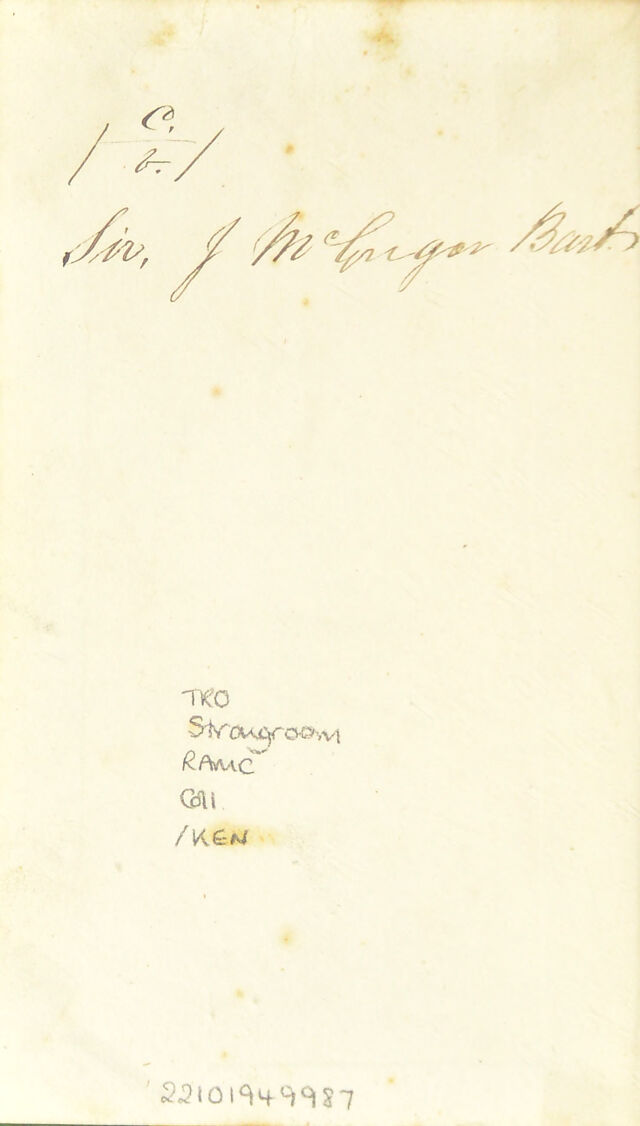 / C. /
v.
Sir, J McGrigor Bart
TRO
Strongroom
RAMC
Coll
/KEN
22101949987